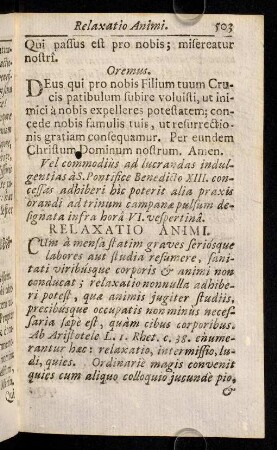 Relaxatio Animi. 503
Qui passus est pro nobis; misereatur
nostri.
Oremus.
DEus qui pro nobis Filium tuum Cru-
cis patibulum subire voluisti, ut ini-
mici à nobis expelleres potestatem; con-
cede nobis famulis tuis, ut resurrectio-
nis gratiam consequamur. Per eundem
Christum Dominum nostrum. Amen.
Vel commodius ad lucrandas indul-
gentias à S. Pontifice Benedicto XIII. con-
cessas adhiberi hîc poterit alia praxis
orandi ad trinum campanæ pulsum de-
signata infra horâ VI. vespertinâ.
RELAXATIO ANIMI.
CUm à mensa statim graves seriosque
labores aut studia resumere, sani-
tati viribusque corporis & animi non
conducat; relaxatio nonnulla adhibe-
ri potest, quæ animis jugiter studiis,
precibusque occupatis non minus neces-
saria sæpè est, quàm cibus corporibus.
Ab Aristotele L. 1. Rhet. c. 38. enume-
rantur hæc: relaxatio, intermissio, lu-
di, quies. Ordinariè magis convenit
quies cum aliquo colloquio jucundè pio,
&